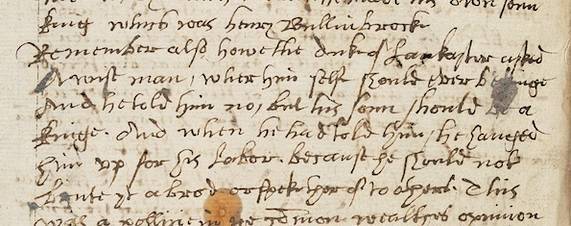 his own sonn
kinge which was henry Bullinbrocke
Remember also howe the duke of Lankaster asked
A wise man, wher him self should ever be kinge
And he told him no, but his sonn should be a
kinge. And when he had told him, he hanged
him up for his labor. because he should not
brute yt abrod or speke therof to others. This
was a pollitie in the comon wealthes opinion